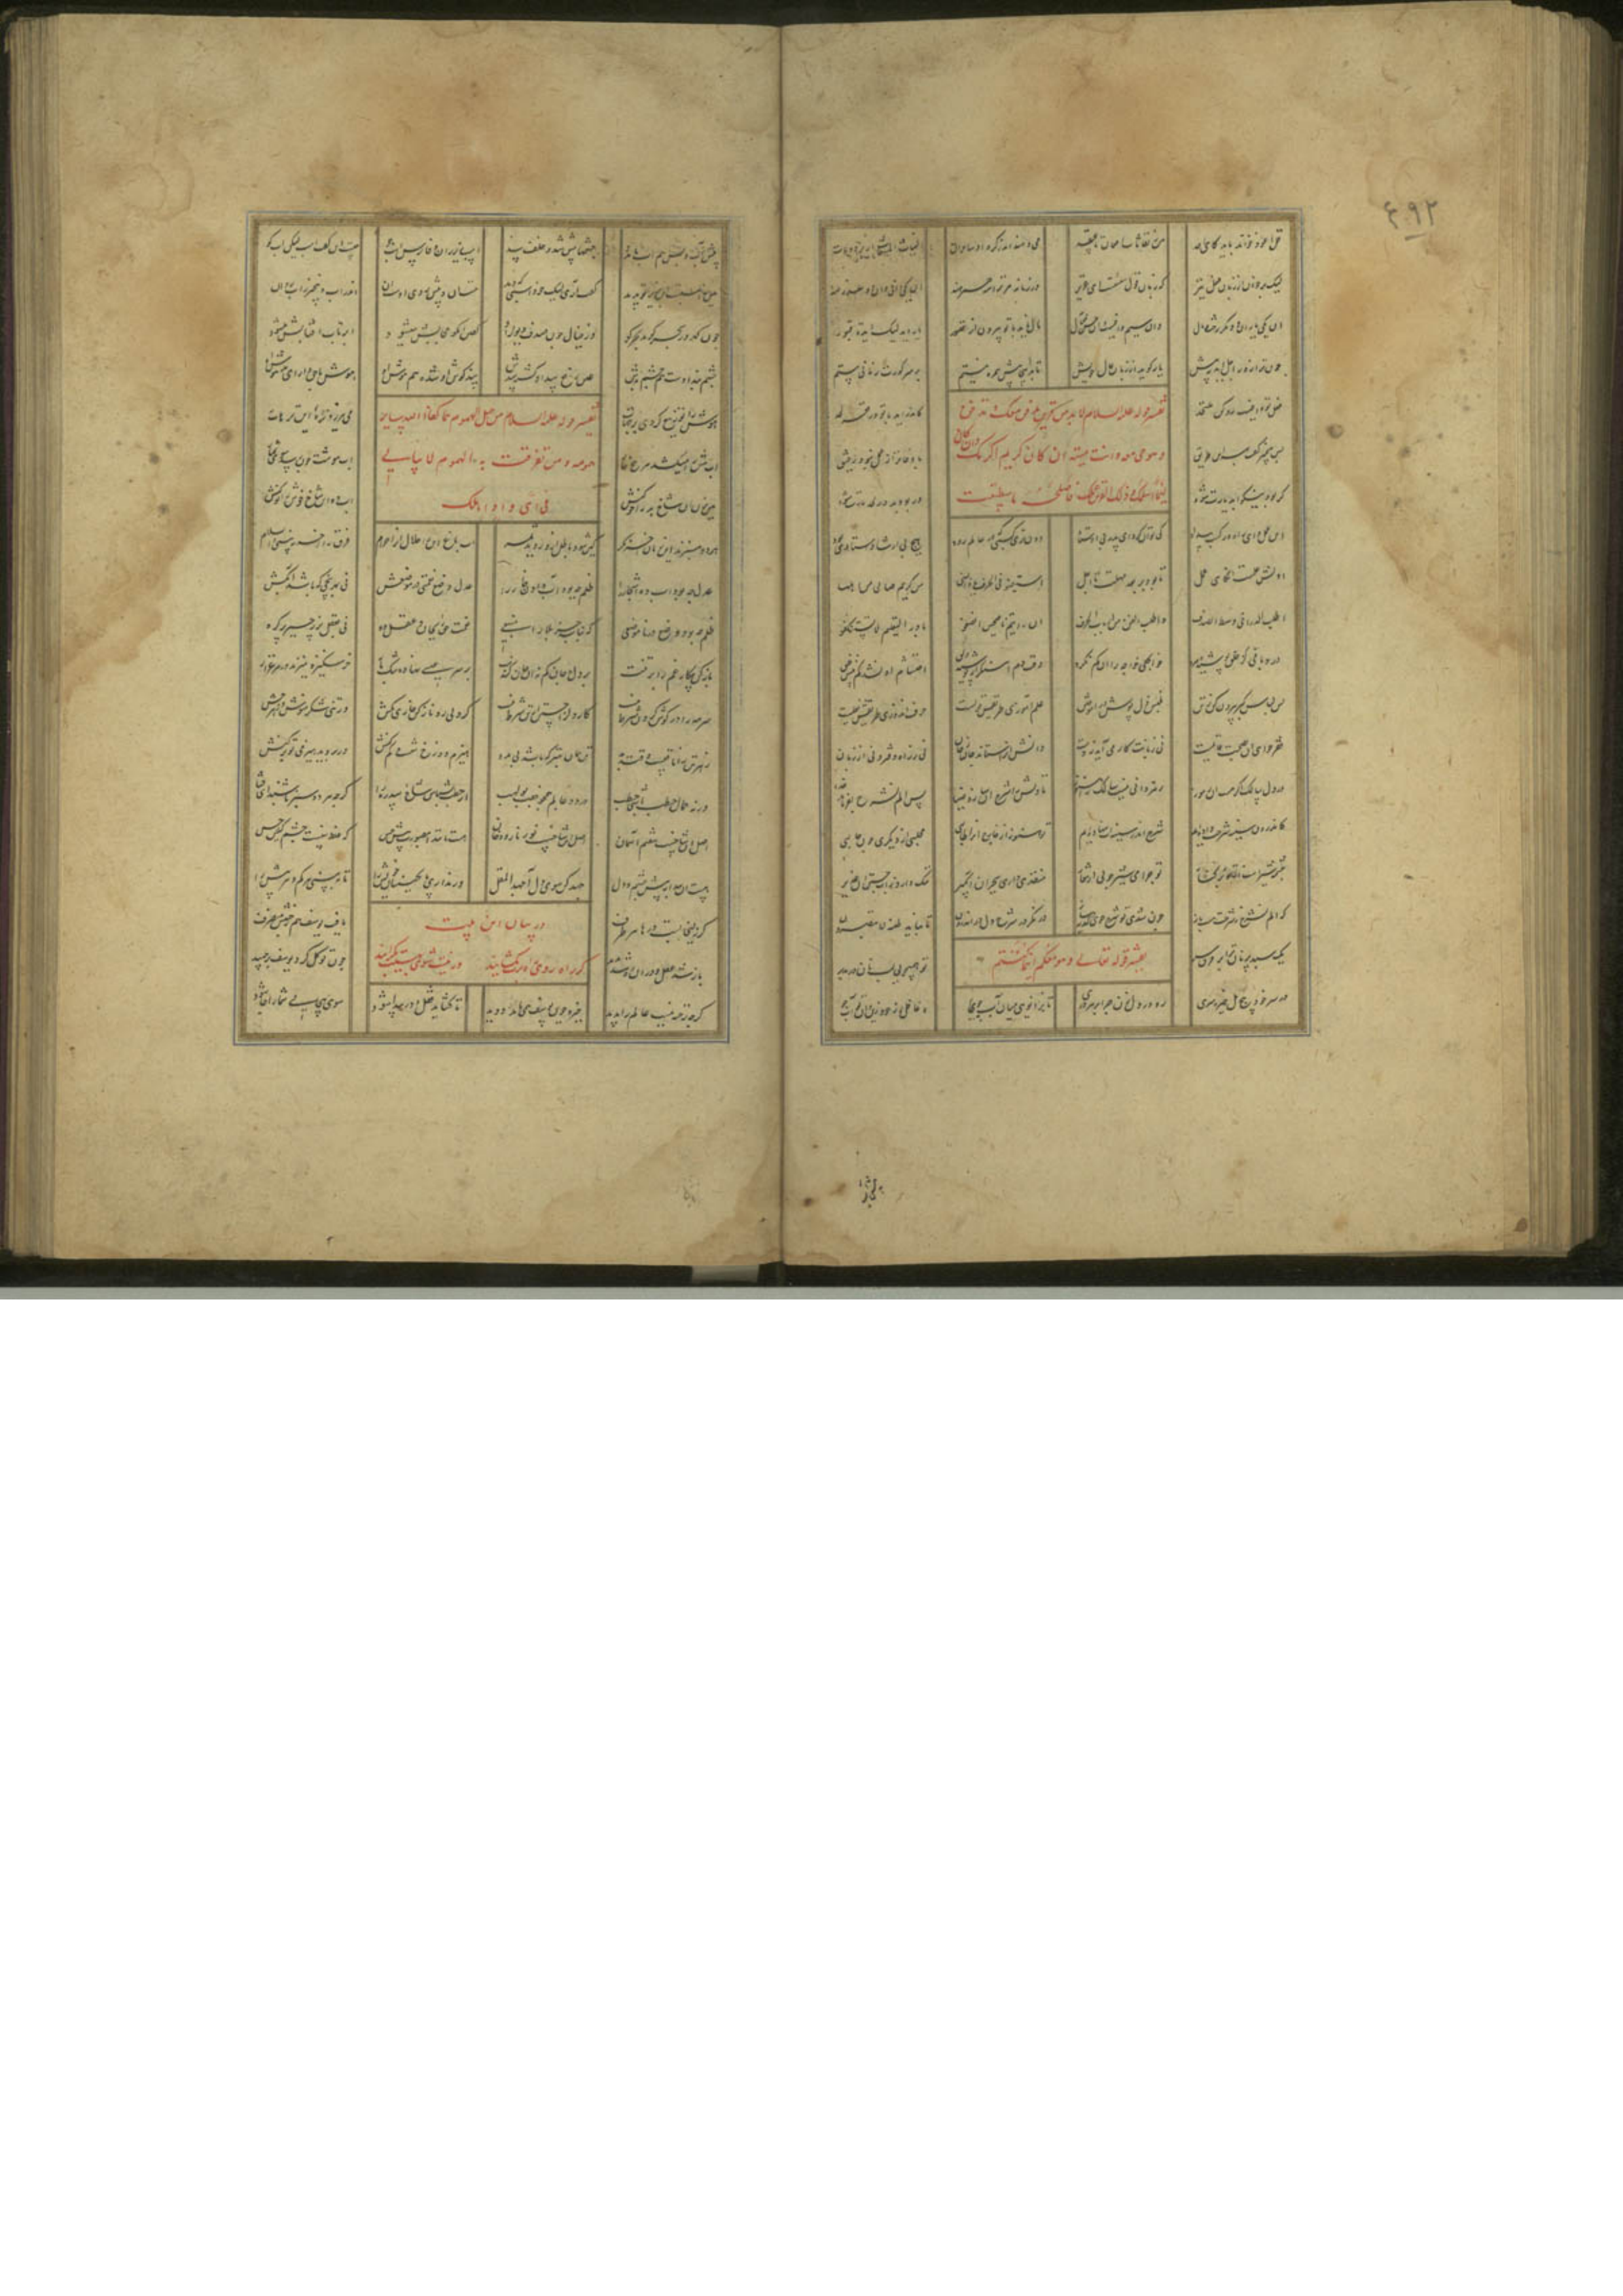 ٤٩٢
الغیاث المستغاث از برد و مات
لیک برخوان از زبان فعل نیز که زبان قول سستست ای عزیز در زمانه مر ترا سه همرهند آن یکی وافی و آن دو غدرمند
آن یکی یاران و دیگر رخت و مال وان سیم وافیست آن حسن فعال مال ناید با تو بیرون از قصور یار آید لیک آید تا بگور
چون ترا روز اجل آید پیش یار گوید از زبان حال خویش تا بدینجا بیش همره نیستم بر سر گورت زمانی بیستم
فعل تو وافیست زو کن ملتحد که درآید با تو در قعر لحد
تفسیر قوله علیه السلام لابد من قرین یدفن معک و تدفن
و هو حی معه و انت میت ان کان کریم اکرمک وان کان
لئیما اسلمک و ذلک القرین عملک فاصلحه ما استطعت
پس پیمبر گفت بهر این طریق باوفاتر از عمل نبود رفیق
گر بود نیکو ابد یارت شود ور بود بد در لحد مارت شود
این عمل وین کسب در راه سداد کی توان کرد ای پدر بی اوستاد دون ترین کسبی که در عالم رود هیچ بی ارشاد استادی بود
اولش علمست آنگاهی عمل تا دهد بر بعد مهلت تا اجل استعینوا فی الحرف یا ذا النهی من کریم صالح من اهلها
اطلب الدر اخی وسط الصدف واطلب الفن من ارباب الحرف ان رایتم ناصحین انصفوا بادروا التعلیم لا تستنکفوا
در دباغی گر خلق پوشید مرد خواجگی خواجه را آن کم نکرد وقت دم آهنگر ار پوشید دلق احتشام او نشد کم پیش خلق
پس لباس کبر بیرون کن ز تن ملبس ذل پوش در آموختن علم آموزی طریقش قولیست حرفت آموزی طریقش فعلیست
فقر خواهی آن بصحبت قایمست نی زبانت کار می آید نه دست دانش آن را ستاند جان ز جان نی ز راه دفتر و نی از زبان
در دل سالک اگر هست آن رموز رمزدانی نیست سالک را هنوز تا دلش را شرح آن سازد ضیا پس الم نشرح بفرماید خدا
کاندرون سینه شرحت داده ایم شرح اندر سینه ات بنهاده ایم تو هنوز از خارج آن را طالبی محلبی از دیگری چون حالبی
چشمه شیرست در تو بی کنار تو چرا می شیر جویی از تغار منفذی داری ببحر ای آبگیر ننگ دار از آب جستن از غدیر
که الم نشرح نه شرحت هست باز چون شدی تو شرح جوی و کدیه ساز در نگر در شرح دل در اندرون تا نیاید طعنه لا تبصرون
تفسیر قوله تعالی و هو معکم اینما کنتم
یک سبد پر نان ترا بر فرق سر تو همی خواهی لب نان در بدر
در سر خود پیچ هل خیره سری رو در دل زن چرا بر هر دری تا بزانویی میان آب جو غافل از خود زین و آن تو آب جو
پیش آب و پس هم آب با مدد چشمها را پیش سد و خلف سد اسب زیر ران و فارس اسب جو چیست این گفت اسب لیکن اسب کو
هی نه اسبست این بزیر تو پدید گفت آری لیک خود اسبی که دید مست آب و پیش روی اوست آن اندر آب و بیخبر ز آب روان
چون گهر در بحر گوید بحر کو وان خیال چون صدف دیوار او گفتن آن کو حجابش میشود ابر تاب آفتابش میشود
بند چشم اوست هم چشم بدش عین رفع سد او گشته سدش بند گوش او شده هم هوش او هوش با حق دار ای مدهوش او
هوش را توزیع کردی بر جهات می نیرزد تره ای آن ترهات
تفسیر قوله علیه السلام من جعل الهموم هما کفاه الله سایر
همومه و من تفرقت به الهموم لا یبالی
فی ای واد اهلک
آب هش را میکشد هر بیخ خار آب هوشت چون رسد سوی ثمار
هین بزن آن شاخ بد را خو کنش آب ده این شاخ خوش را نو کنش
هر دو سبزند این زمان آخر نگر کین شود باطل از آن روید ثمر آب باغ این را حلال آن را حرام فرق را آخر ببینی والسلام
عدل چه بود آب ده اشجار را ظلم چه بود آب دادن خار را عدل وضع نعمتی در موضعش نی بهر بیخی که باشد آبکش
ظلم چه بود وضع در ناموضعی که نباشد جز بلا را منبعی نعمت حق را بجان و عقل ده نی بطبع پر زحیر پر گره
بار کن پیکار غم را بر تنت بر دل و جان کم نه آن جان کندنت بر سر عیسی نهاده تنگ بار خر سکیزه میزند در مرغزار
سرمه را در گوش کردن شرط نیست کار دل را جستن از تن شرط نیست گر دلی رو ناز کن خواری مکش ور تنی شکر منوش و زهر چش
زهر تن را نافعست و قند بد تن همان بهتر که باشد بی مدد هیزم دوزخ تنست و کم کنش ور بروید هیزمی رو بر کنش
ورنه حمال حطب باشی حطب در دو عالم همچو جفت بولهب از حطب بشناس شاخ سدره را گرچه هر دو سبز باشند ای فتا
اصل آن شاخست هفتم آسمان اصل این شاخست از نار و دخان هست مانندا بصورت پیش حس که غلط بینست چشم و کیش حس
هست آن پیدا به پیش چشم دل جهد کن سوی دل آ جهد المقل ور نداری پا بجنبان خویش را تا ببینی هر کم و هر بیش را
در بیان این بیت
گر راه روی راه برت بگشایند ور نیست شوی بهستیت بگرایند
گر زلیخا بست درها هر طرف یافت یوسف هم ز جنبش منصرف
باز شد قفل و در و شد ره پدید چون توکل کرد یوسف برجهید
گرچه رخنه نیست عالم را پدید خیره چون یوسف همی باید دوید تا گشاید قفل و در پیدا شود سوی بیجایی شما را جا شود